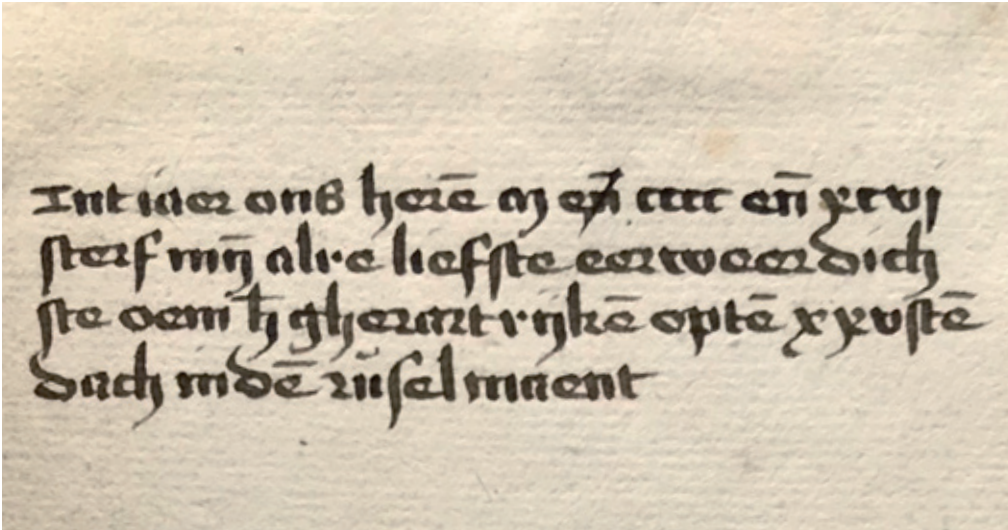 Int iaer ons herē m en̄ cccc en̄ xcvi
sterf mȳ alre liefste eerweerdich
ste oem h̄ gherart rijkē optē xxvstē
dach in dē rūsel maent